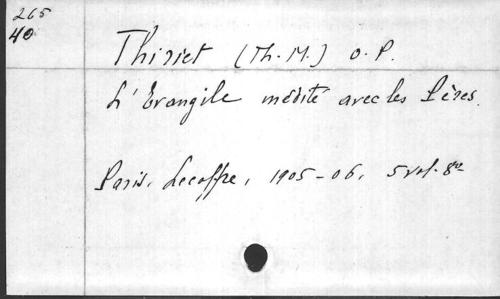 265
40
Thiriet (Th. M.) O. P.
L'Evangile médité avec les Pères.
Paris, Lecoffre, 1905-06, 5 vol. 8º